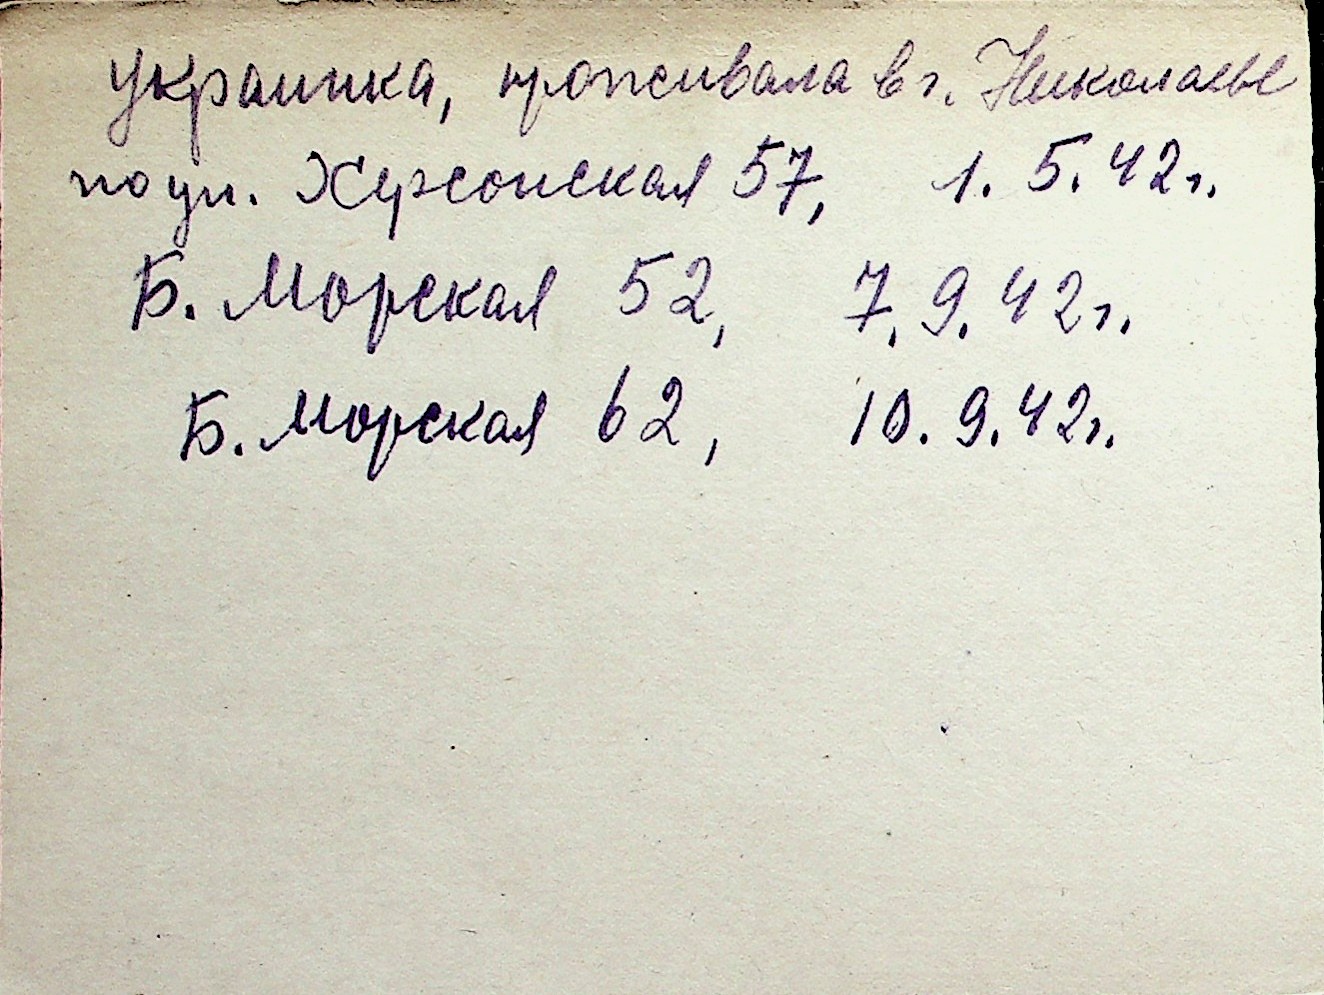 украинка, проживала в г. Николаеве
по ул. Херсонская 57, 1. 5. 42 г.
Б. Морская 52, 7. 9. 42 г.
Б. Морская 62, 10. 9. 42 г.